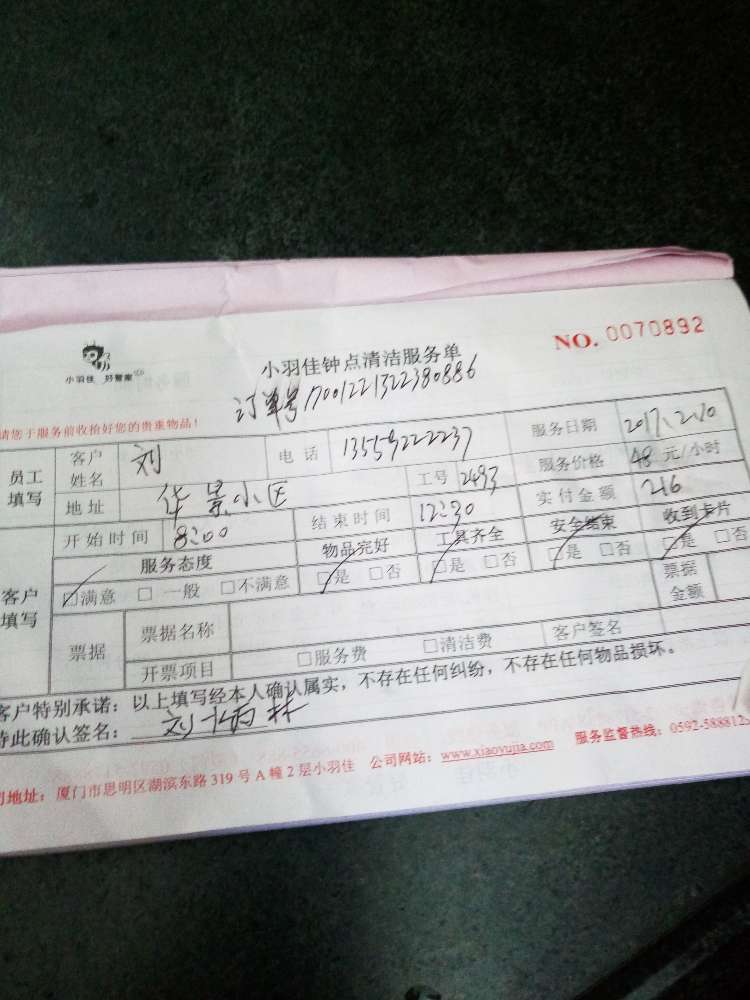 小羽佳 好管家
小羽佳钟点清洁服务单
NO. 0070892
订单号
请您于服务前收拾好您的贵重物品!
员工填写 客户姓名 刘 电话 13559222237 服务日期 2017.2.10
地址 华景小区 工号 2493 服务价格 48 元/小时
开始时间 8:00 结束时间 12:30 实付金额 216
客户填写 服务态度 物品完好 工具齐全 安全结束 收到卡片
□满意 □一般 □不满意 □是 □否 □是 □否 □是 □否 □是 □否
票据 票据名称 票据金额
开票项目 □服务费 □清洁费 客户签名
客户特别承诺:以上填写经本人确认属实,不存在任何纠纷,不存在任何物品损坏。
特此确认签名:刘
司地址:厦门市思明区湖滨东路319号A幢2层小羽佳 公司网站:www.xiaoyujia.com 服务监督热线:0592-588812